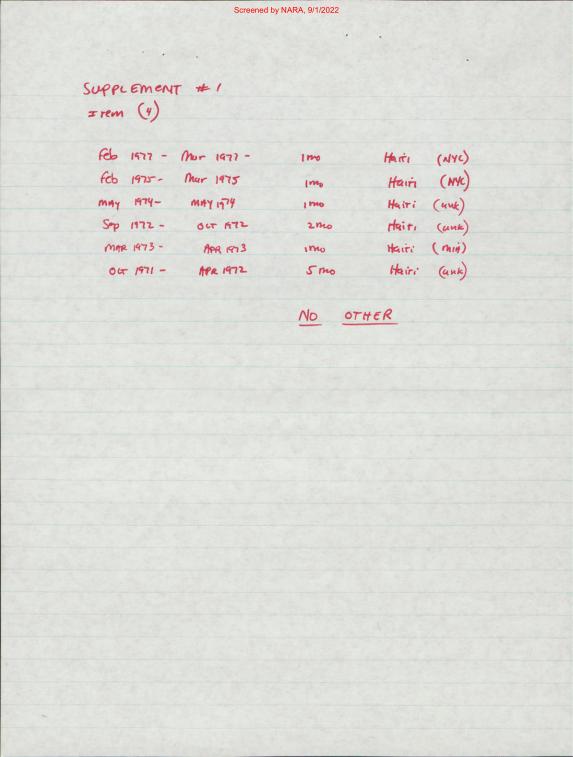 Screened by NARA, 9/1/2022
SUPPLEMENT #1
Item (4)
Feb 1977 - Mar 1977 - 1mo Haiti (NYC)
Feb 1975- Mar 1975 1mo Haiti (NYC)
MAY 1974- MAY 1974 1mo Haiti (unk)
Sep 1972 - OCT 1972 2mo Haiti (unk)
MAR 1973 - APR 1973 1mo Haiti (mia)
OCT 1971 - APR 1972 5mo Haiti (unk)
NO OTHER